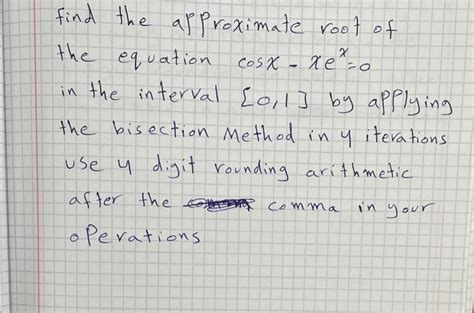 find the approximate root of
the equation cosx - xeˣ=0
in the interval [0,1] by applying
the bisection Method in 4 iterations
use 4 digit rounding arithmetic
after the comma in your
operations